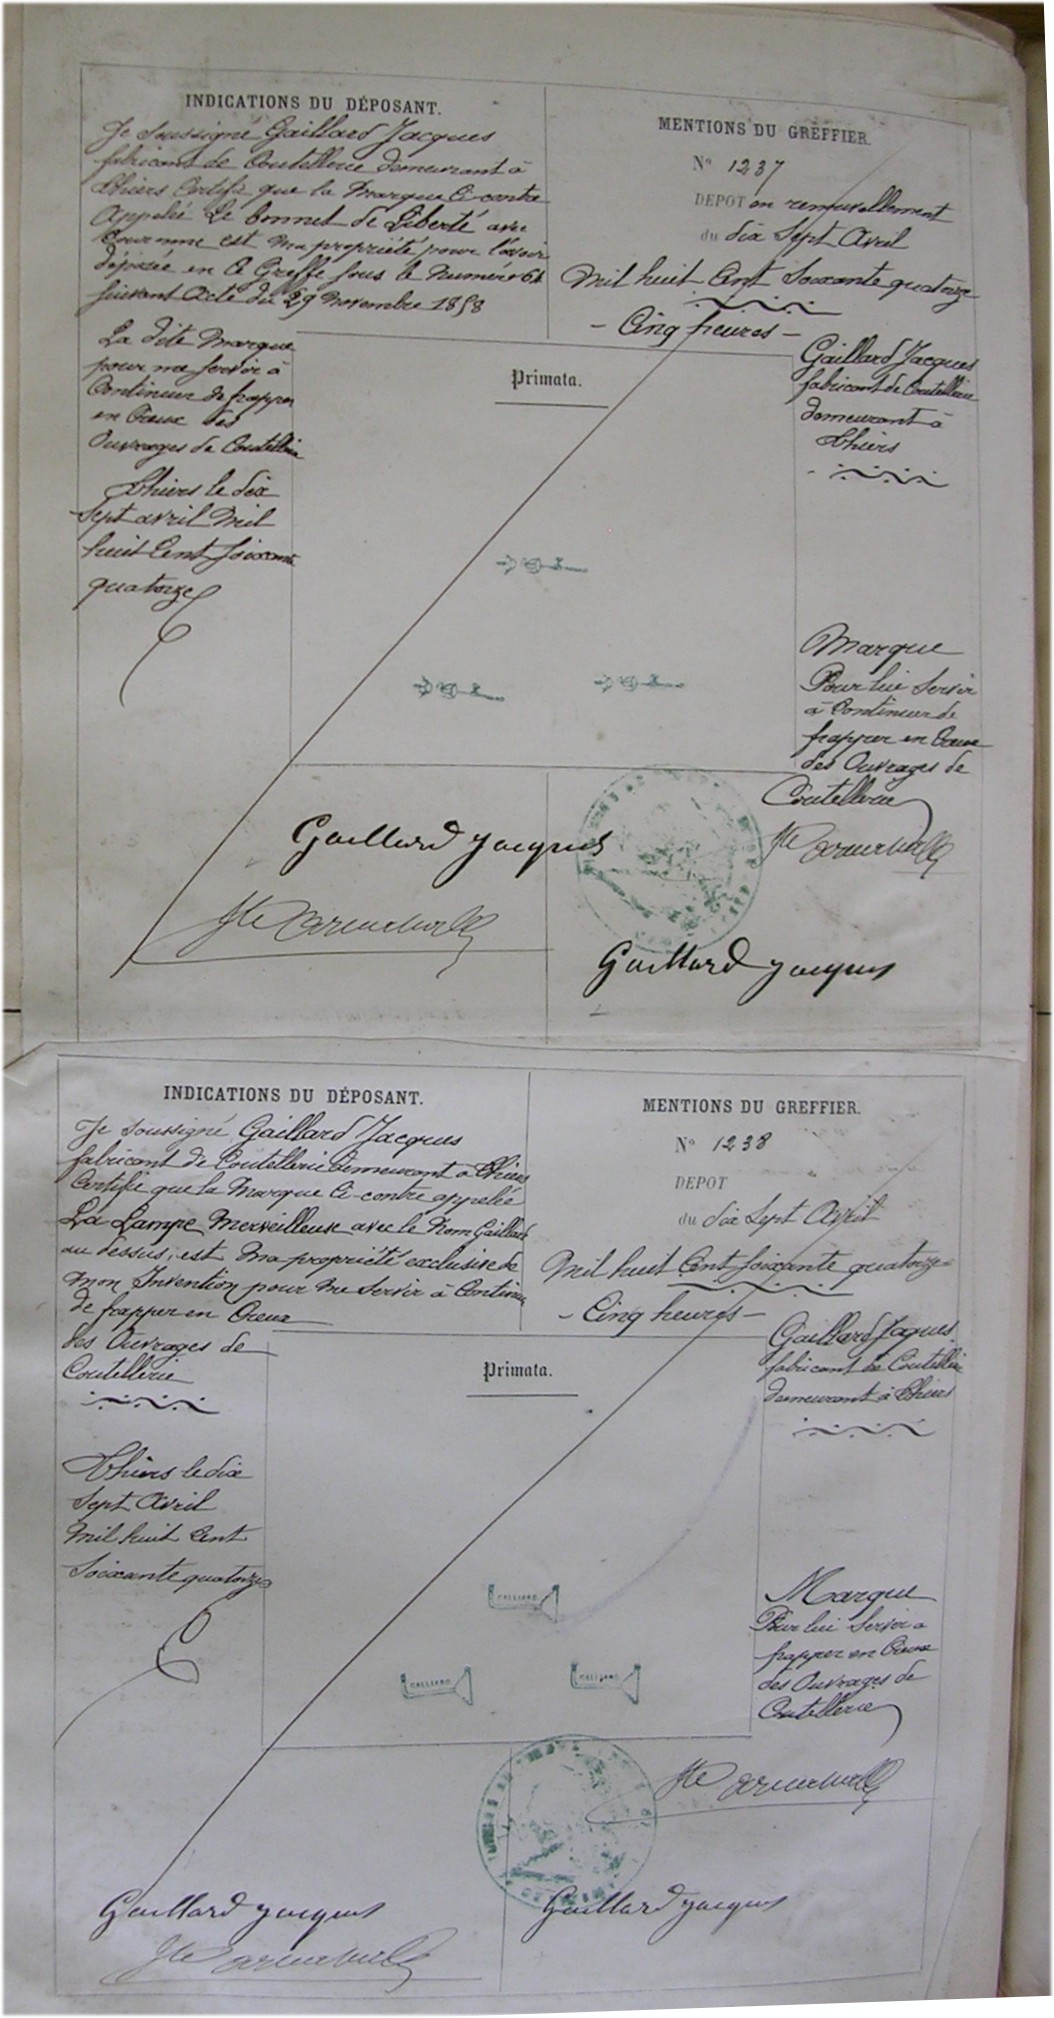 INDICATIONS DU DÉPOSANT.
Je soussigné Gaillard Jacques
fabricant de Coutellerie demeurant à
Thiers Certifie que la Marque Ci-contre
appelée Le bonnet de Liberté avec
Couronne est ma propriété pour l'avoir
déposée en Ce Greffe sous le Numéro 64
suivant Acte du 29 Novembre 1858
La dite Marque
pour me servir à
Continuer de frapper
en Creux des
Ouvrages de Coutellerie
Thiers le dix
Sept avril Mil
huit Cent soixante
quatorze
MENTIONS DU GREFFIER.
N° 1237
DEPOT en renouvellement
du dix Sept Avril
Mil huit Cent Soixante quatorze
- Cinq heures -
Gaillard Jacques
fabricant de Coutellerie
demeurant à
Thiers
Primata.
Marque
Pour lui Servir
à Continuer de
frapper en Creux
des Ouvrages de
Coutellerie
Gaillard Jacques
Gaillard Jacques
INDICATIONS DU DÉPOSANT.
Je soussigné Gaillard Jacques
fabricant de Coutellerie demeurant à Thiers
Certifie que la Marque Ci-contre appelée
La Lampe Merveilleuse avec le Nom Gaillard
au dessus, est Ma propriété exclusive de
Mon Invention pour me Servir à Continuer
de frapper en Creux
des Ouvrages de
Coutellerie
Thiers le dix
Sept Avril
Mil huit Cent
Soixante quatorze
MENTIONS DU GREFFIER.
N° 1238
DEPOT
du dix Sept Avril
Mil huit Cent soixante quatorze
- Cinq heures -
Gaillard Jacques
fabricant de Coutellerie
demeurant à Thiers
Primata.
GALLIARD
GALLIARD
GALLIARD
Marque
Pour lui Servir à
frapper en Creux
des Ouvrages de
Coutellerie
Gaillard Jacques
Gaillard Jacques